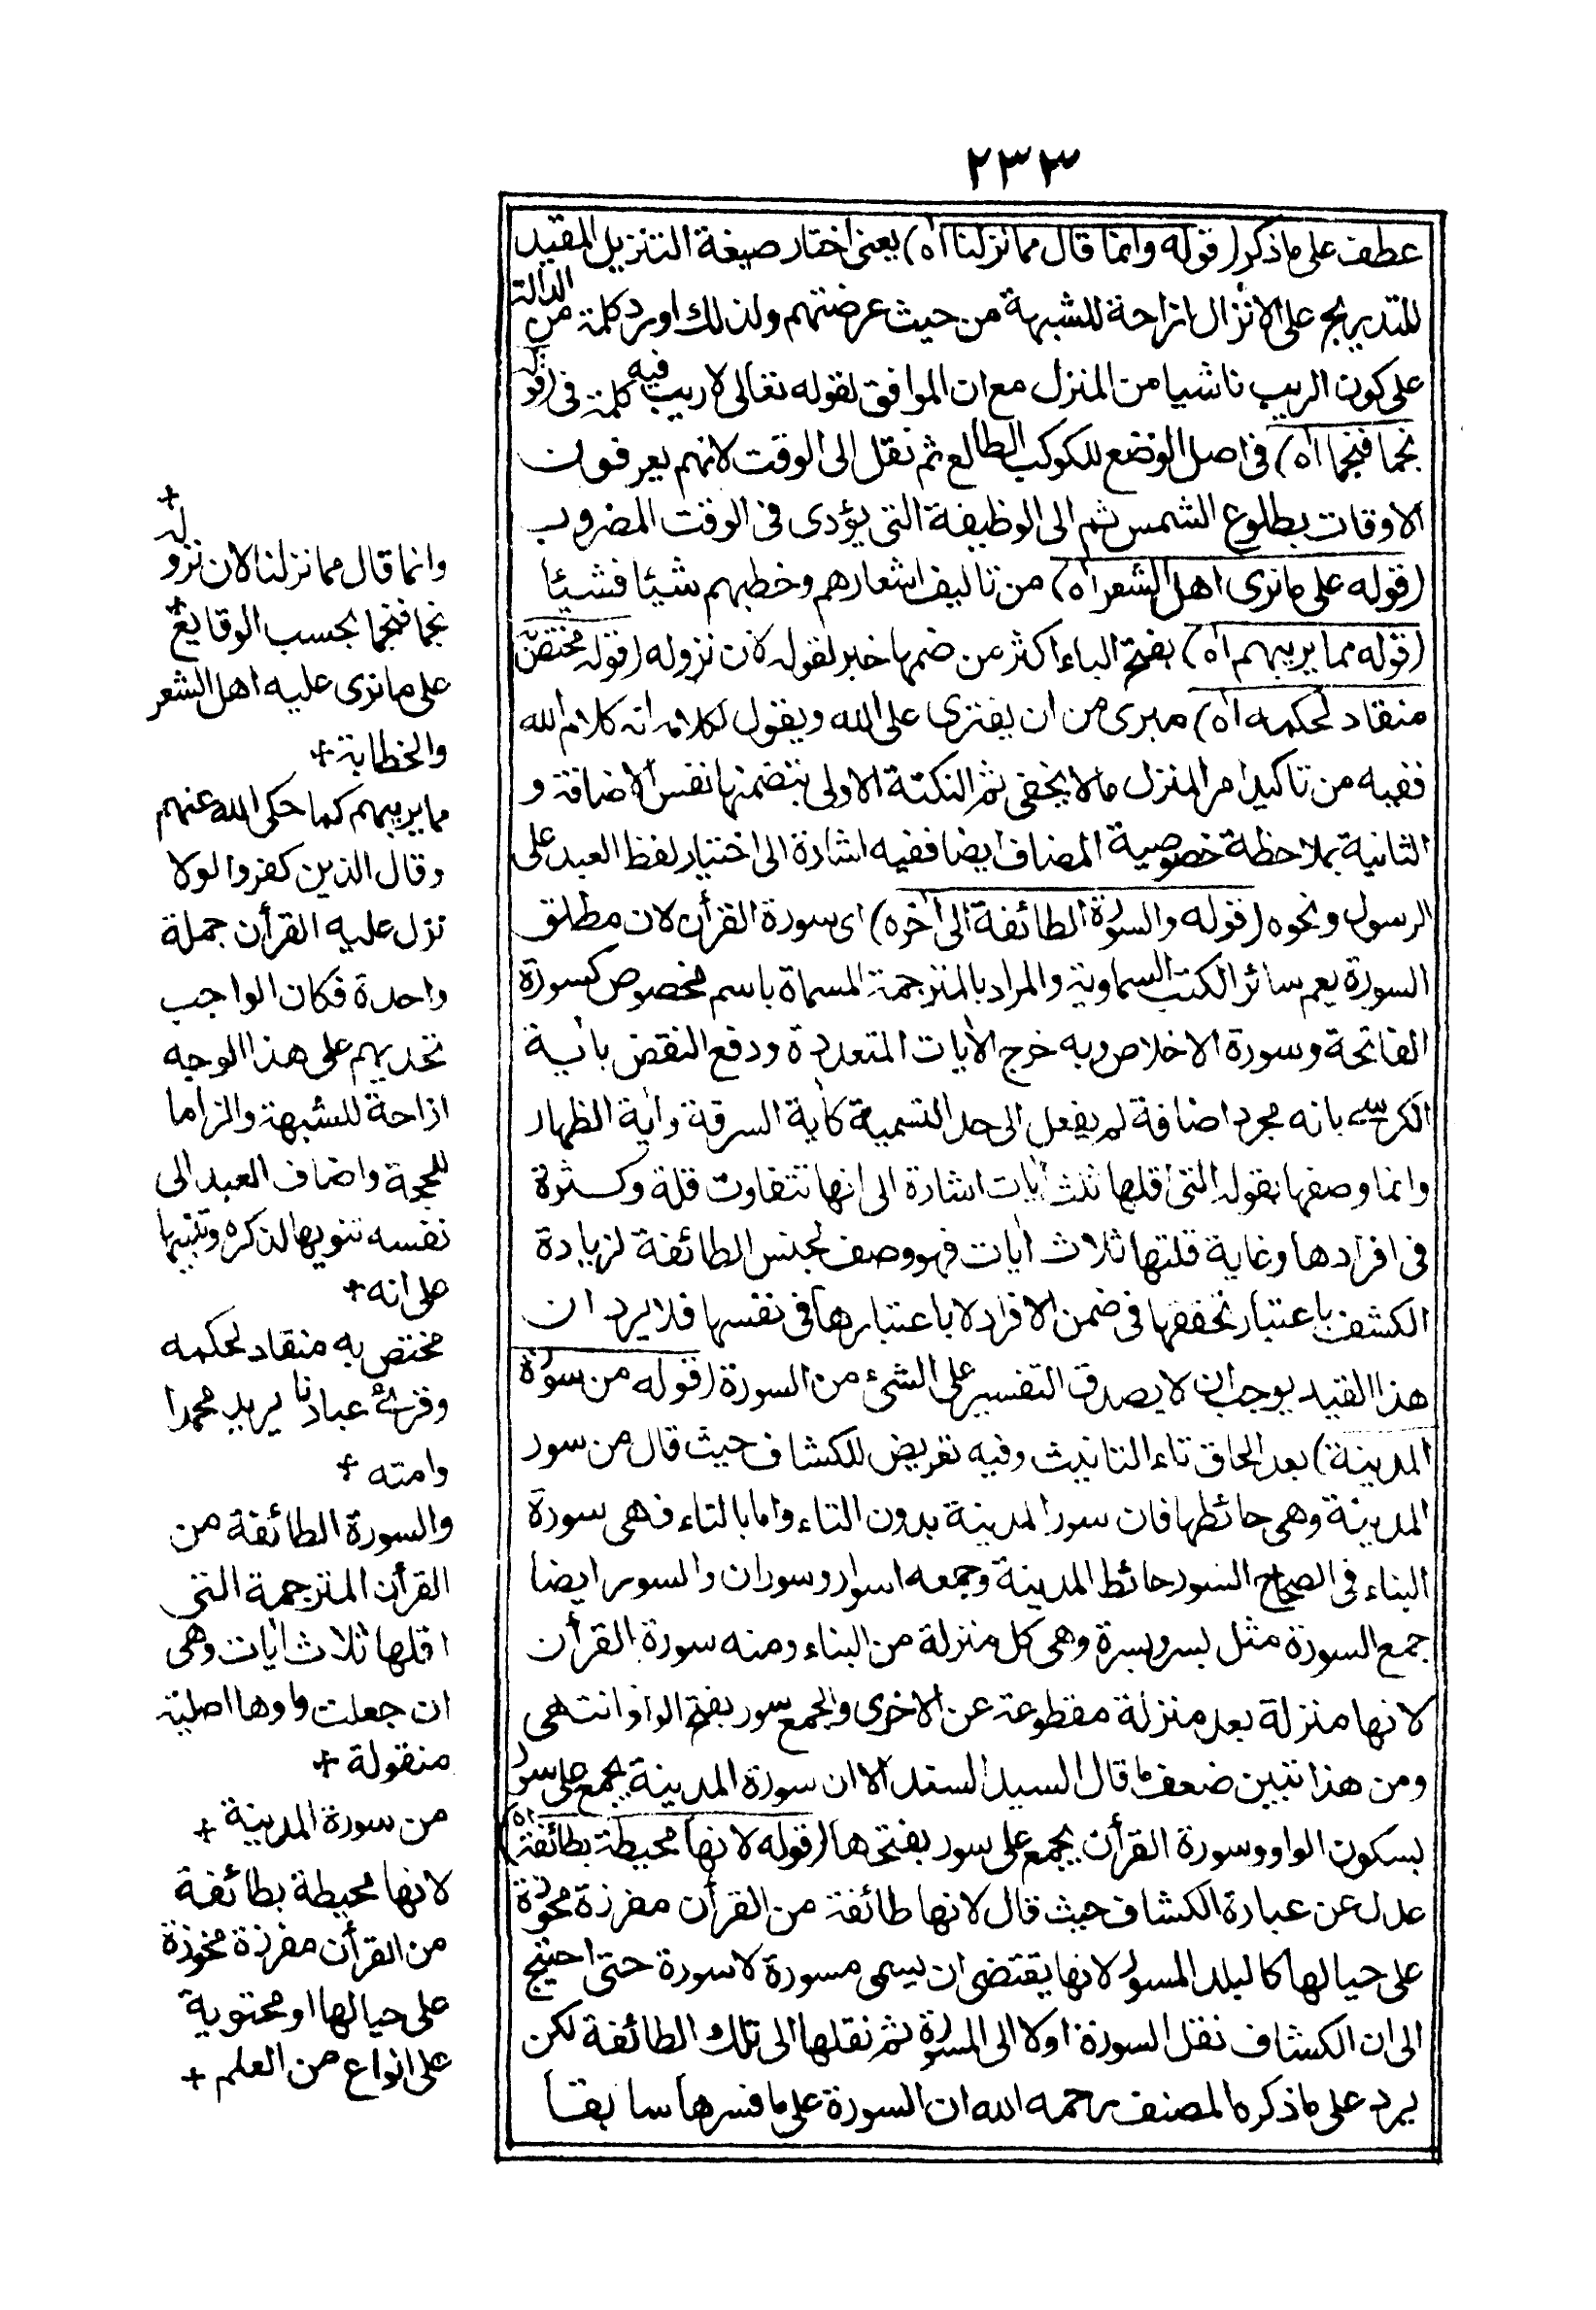 ٢٣٣
عطف على ماذكر (قوله وانما قال مما نزلنا اه) يعنى اختار صيغة التنزيل المقيد
للتدريج على الانزال ازاحة للشبهة من حيث عرضتهم ولذلك اورد كلمة من الدالة
على كون الريب ناشيا من المنزل مع ان الموافق لقوله تعالى لا ريب فيه كلمة فى (قوله
نجما فنجما اه) فى اصل الوضع للكوكب الطالع ثم نقل الى الوقت لانهم يعرفون
الاوقات بطلوع الشمس ثم الى الوظيفة التى يؤدى فى الوقت المضروب
(قوله على مانرى اهل الشعر اه) من تاليف اشعارهم وخطبهم شيئا فشيئا
(قوله مما يريبهم اه) بفتح الياء اكثر من ضمها خبر لقوله لان نزوله (قوله مختص
منقاد لحكمه اه) مبرى من ان يفترى على الله ويقول لكلامه انه كلام الله
ففيه من تاكيد امر المنزل مالا يخفى ثم النكتة الاولى يتضمنها نفس الاضافة و
الثانية بملاحظة خصوصية المضاف ايضا ففيه اشارة الى اختيار لفظ العبد على
الرسول ونحوه (قوله والسورة الطائفة الى اخره) اى سورة القرأن لان مطلق
السورة يعم سائر الكتب السماوية والمراد بالمترجمة المسماة باسم مخصوص كسورة
الفاتحة وسورة الاخلاص وبه خرج الايات المتعددة ودفع النقض باية
الكرسى بانه مجرد اضافة لم يفعل الى حد التسمية كاية السرقة واية الظهار
وانما وصفها بقوله التى اقلها ثلث ايات اشارة الى انها تتفاوت قلة وكثرة
فى افرادها وغاية قلتها ثلاث ايات فهو وصف لجنس الطائفة لزيادة
الكشف باعتبار تحققها فى ضمن الافراد لا باعتبارها فى نفسها فلا يرد ان
هذا القيد يوجب ان لا يصدق التفسير على الشئ من السورة (قوله من سورة
المدينة) بعد الحاق تاء التانيث وفيه تعريض للكشاف حيث قال من سور
المدينة وهى حائطها فان سور المدينة بدون التاء واما بالتاء فهى سورة
البناء فى الصحاح السور حائط المدينة وجمعه اسوار وسوران والسور ايضا
جمع السورة مثل بسر وبسرة وهى كل منزلة من البناء ومنه سورة القرأن
لانها منزلة بعد منزلة مقطوعة عن الاخرى والجمع سور بفتح الواو انتهى
ومن هذا تبين ضعف ما قال السيد السند الا ان سورة المدينة يجمع على سور
بسكون الواو وسورة القرأن يجمع على سور بفتحها (قوله لانها محيطة بطائفة اه)
عدل عن عبارة الكشاف حيث قال لانها طائفة من القرأن مفرزة محوزة
على حيالها كالبلد المسور لانها يقتضى ان يسمى مسورة لا سورة حتى احتيج
الى ان الكشاف نقل السورة اولا الى المسورة ثم نقلها الى تلك الطائفة لكن
يرد على ماذكره المصنف رحمه الله ان السورة على ما فسرها سابقا
وانما قال مما نزلنا لان نزوله
نجما فنجما بحسب الوقايع
على مانرى عليه اهل الشعر
والخطابة +
مما يريبهم كما حكى الله عنهم
وقال الذين كفروا لولا
نزل عليه القرأن جملة
واحدة فكان الواجب
تحديهم على هذا الوجه
ازاحة للشبهة والزاما
للحجة واضاف العبد الى
نفسه تنويها لذكره وتنبيها
على انه +
مختص به منقاد لحكمه
وقرئ عبادنا يريد محمدا
وامته +
والسورة الطائفة من
القرأن المترجمة التى
اقلها ثلاث ايات وهى
ان جعلت واوها اصلية
منقولة +
من سورة المدينة +
لانها محيطة بطائفة
من القرأن مفرزة محوزة
على حيالها او محتوية
على انواع من العلم +